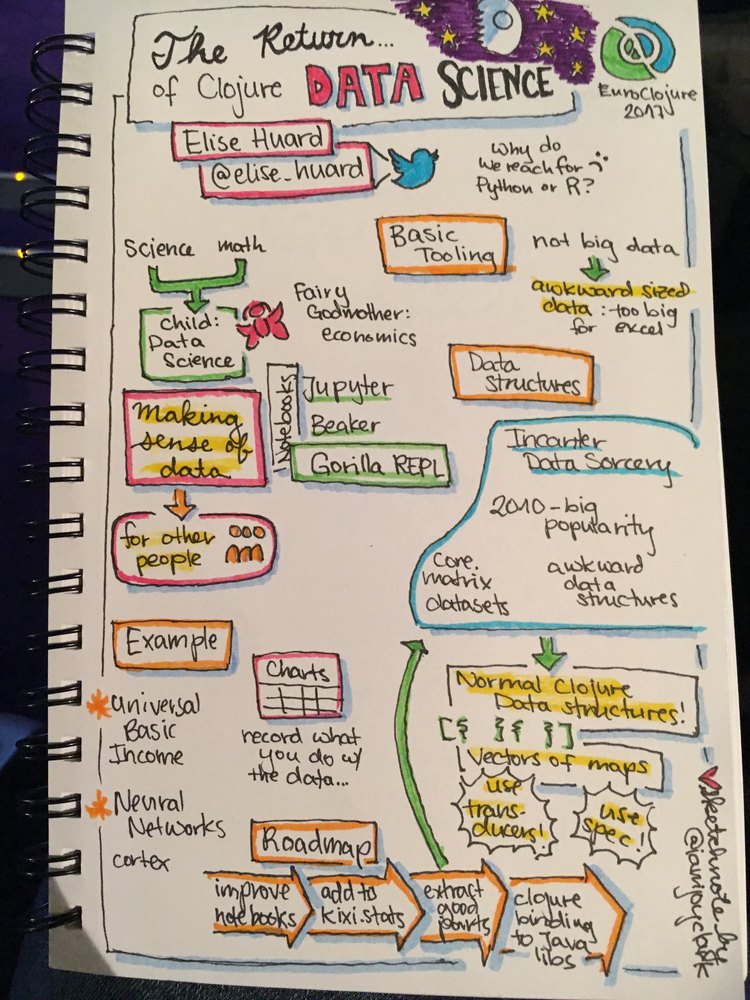 The Return...
of Clojure DATA SCIENCE
EuroClojure
2017
Elise Huard
@elise_huard
Why do
we reach for
Python or R?
Science math
child:
Data
Science
Fairy
Godmother:
economics
Basic
Tooling
not big data
awkward sized
data: too big
for excel
Data
structures
Making
sense of
data
for other
people
Notebooks
Jupyter
Beaker
Gorilla REPL
Incanter
Data Sorcery
2010-big
popularity
core.
matrix
datasets
awkward
data
structures
Example
Universal
Basic
Income
Neural
Networks
cortex
Charts
record what
you do w/
the data...
Normal Clojure
Data structures!
[{ }{ }]
Vectors of maps
use
trans-
ducers!
use
spec!
Roadmap
improve
notebooks
add to
kixi stats
extract
good
parts
clojure
binding
to Java
libs
sketchnote by
@iamjoyclark